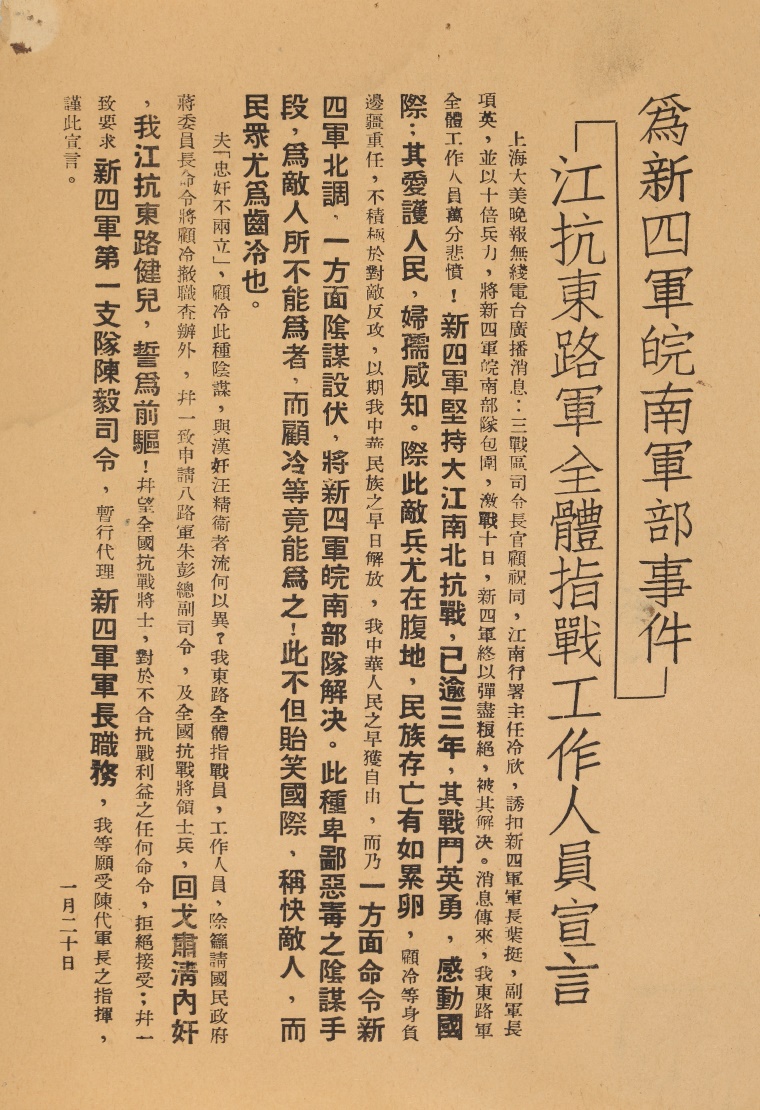 爲新四軍皖南軍部事件
江抗東路軍全體指戰工作人員宣言
上海大美晚報無綫電台廣播消息：三戰區司令長官顧祝同，江南行署主任冷欣，誘扣新四軍軍長葉挺，副軍長
項英，並以十倍兵力，將新四軍皖南部隊包圍，激戰十日，新四軍終以彈盡粮絕，被其解决。消息傳來，我東路軍
全體工作人員萬分悲憤！新四軍堅持大江南北抗戰，已逾三年，其戰鬥英勇，感動國
際；其愛護人民，婦孺咸知。際此敵兵尤在腹地，民族存亡有如累卵，顧冷等身負
邊疆重任，不積極於對敵反攻，以期我中華民族之早日解放，我中華人民之早獲自由，而乃一方面命令新
四軍北調，一方面陰謀設伏，將新四軍皖南部隊解决。此種卑鄙惡毒之陰謀手
段，爲敵人所不能爲者，而顧冷等竟能爲之！此不但貽笑國際，稱快敵人，而
民衆尤爲齒冷也。
夫「忠奸不兩立」，顧冷此種陰謀，與漢奸汪精衞者流何以異？我東路全體指戰員，工作人員，除籲請國民政府
蔣委員長命令將顧冷撤職查辦外，幷一致申請八路軍朱彭總副司令，及全國抗戰將領士兵，回戈肅清內奸
，我江抗東路健兒，誓爲前驅！幷望全國抗戰將士，對於不合抗戰利益之任何命令，拒絕接受；幷一
致要求新四軍第一支隊陳毅司令，暫行代理新四軍軍長職務，我等願受陳代軍長之指揮，
謹此宣言。
一月二十日